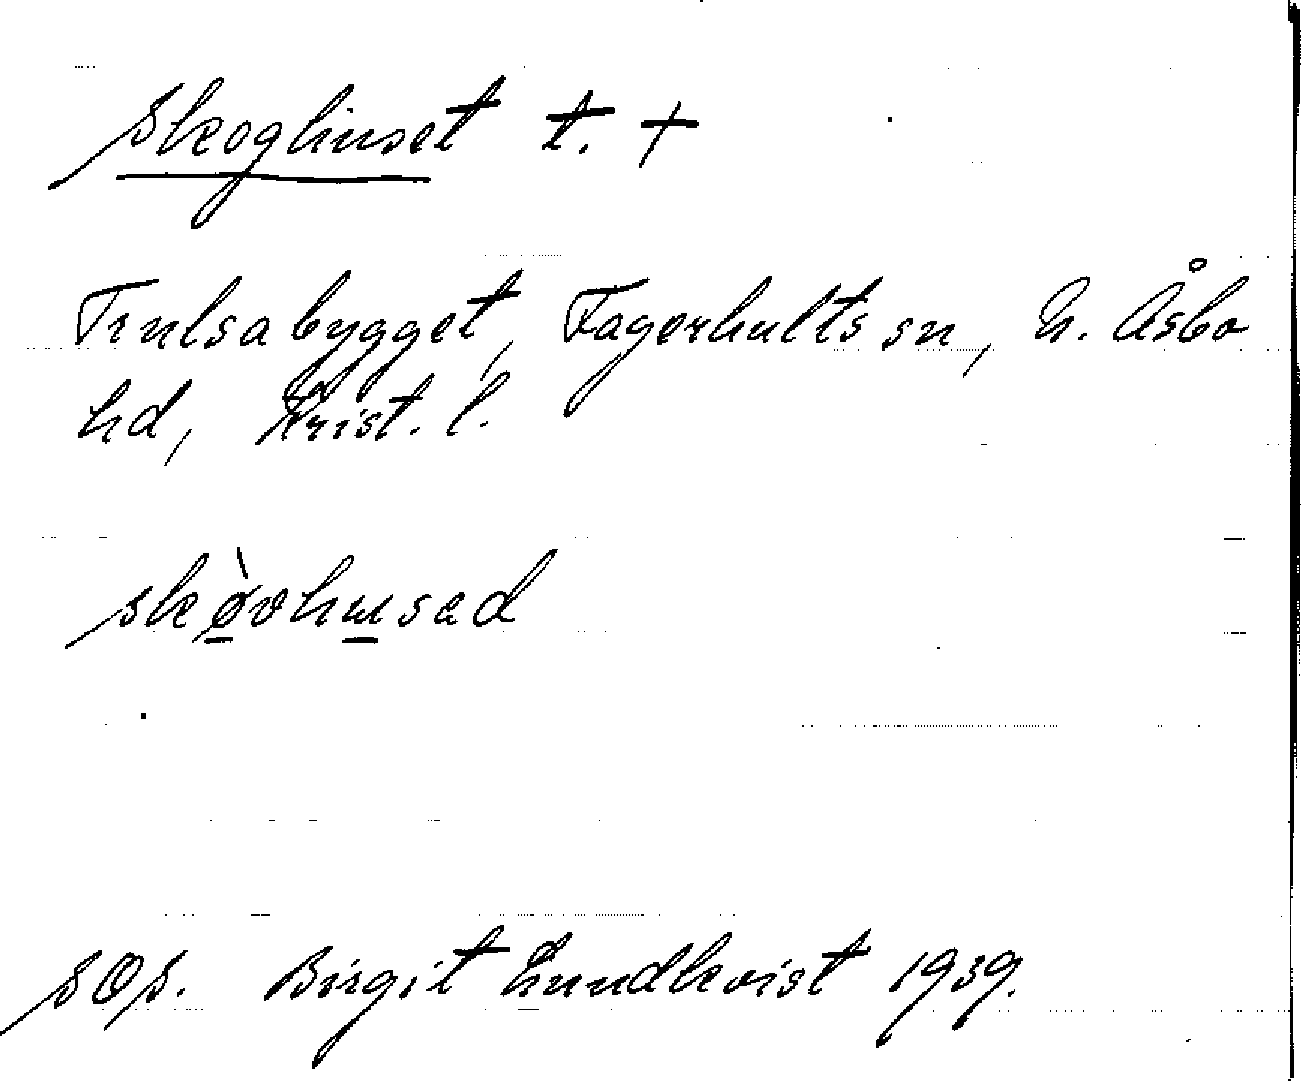 Skoghuset t. +
Trulsabygget, Fagerhults sn, N. Åsbo
hd, Krist. l.
skø̀vhusad
SOS. Birgit Lundkvist 1939.